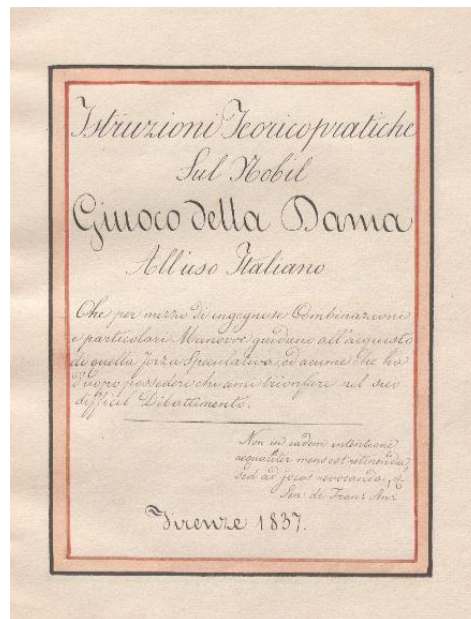 Istruzioni Teoricopratiche
Sul Nobil
Giuoco della Dama
All'uso Italiano
Che per mezzo di ingegnose Combinazioni
e particolari Manovre guidano all'acquisto
di quella forza Speculativa, ed acume che ha
d'uopo possedere chi ami trionfare nel suo
difficil Dibattimento.
Non in eadem intentione
aequaliter mens est retinenda,
sed ad jocos revocanda
Sen: de Tran: Ani:
Firenze 1837.